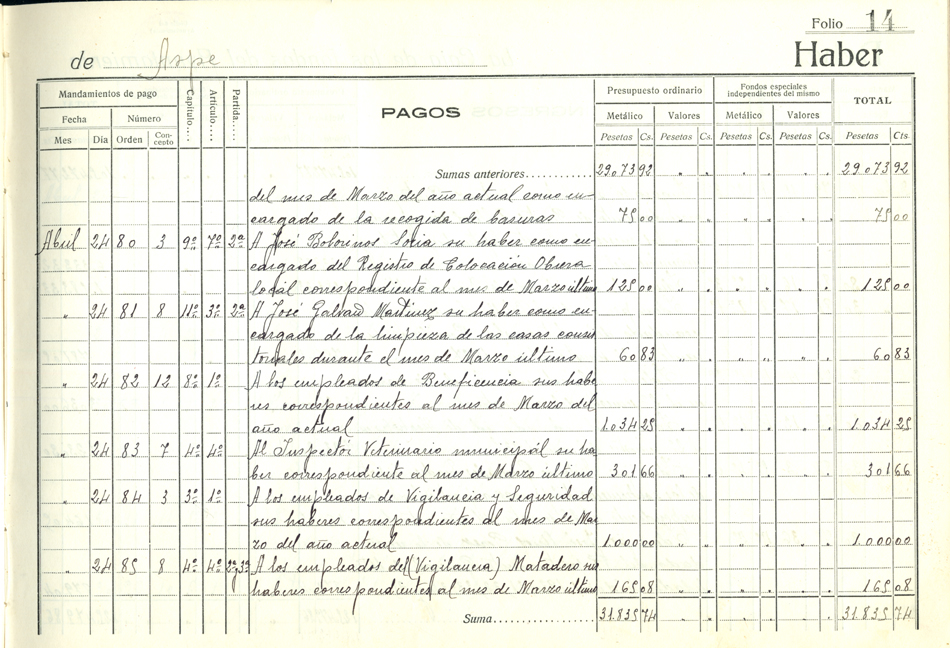 Folio 14
de Aspe Haber
Mandamientos de pago Capítulo.... Artículo.... Partida..... PAGOS Presupuesto ordinario Fondos especiales independientes del mismo TOTAL
Fecha Número Metálico Valores Metálico Valores
Mes Día Orden Concepto Pesetas Cs. Pesetas Cs. Pesetas Cs. Pesetas Cs. Pesetas Cts.
Sumas anteriores............ 29.073 92 " . . . . . 29.073 92
del mes de Marzo del año actual como en-
cargado de la recogida de basuras 75 00 " " " " " " 75 00
Abril 24 80 3 9º 7º 2ª A José Botorinos Soria su haber como en-
cargado del Registro de Colocación Obrera
local correspondiente al mes de Marzo último 125 00 " . . . . . 125 00
" 24 81 8 11º 3º 2ª A José Galvañ Martinez su haber como en-
cargado de la limpieza de las casas consis
toriales durante el mes de Marzo último 60 83 " . " " " . 60 83
" 24 82 12 8º 1º A los empleados de Beneficencia sus habe
res correspondientes al mes de Marzo del
año actual 1.034 25 " . . . " . 1.034 25
" 24 83 7 4º 4º Al Inspector Veterinario municipal su ha
ber correspondiente al mes de Marzo último 301 66 " . " . " . 301 66
" 24 84 3 3º 1º A los empleados de Vigilancia y Seguridad
sus haberes correspondientes al mes de Mar
zo del año actual 1.000 00 " . . . " . 1.000 00
" 24 85 8 4º 4º 2ª y 3ª A los empleados del (Vigilancia) Matadero sus
haberes correspondientes al mes de Marzo último 165 08 " . " . " . 165 08
Suma....................... 31.835 74 31.835 74